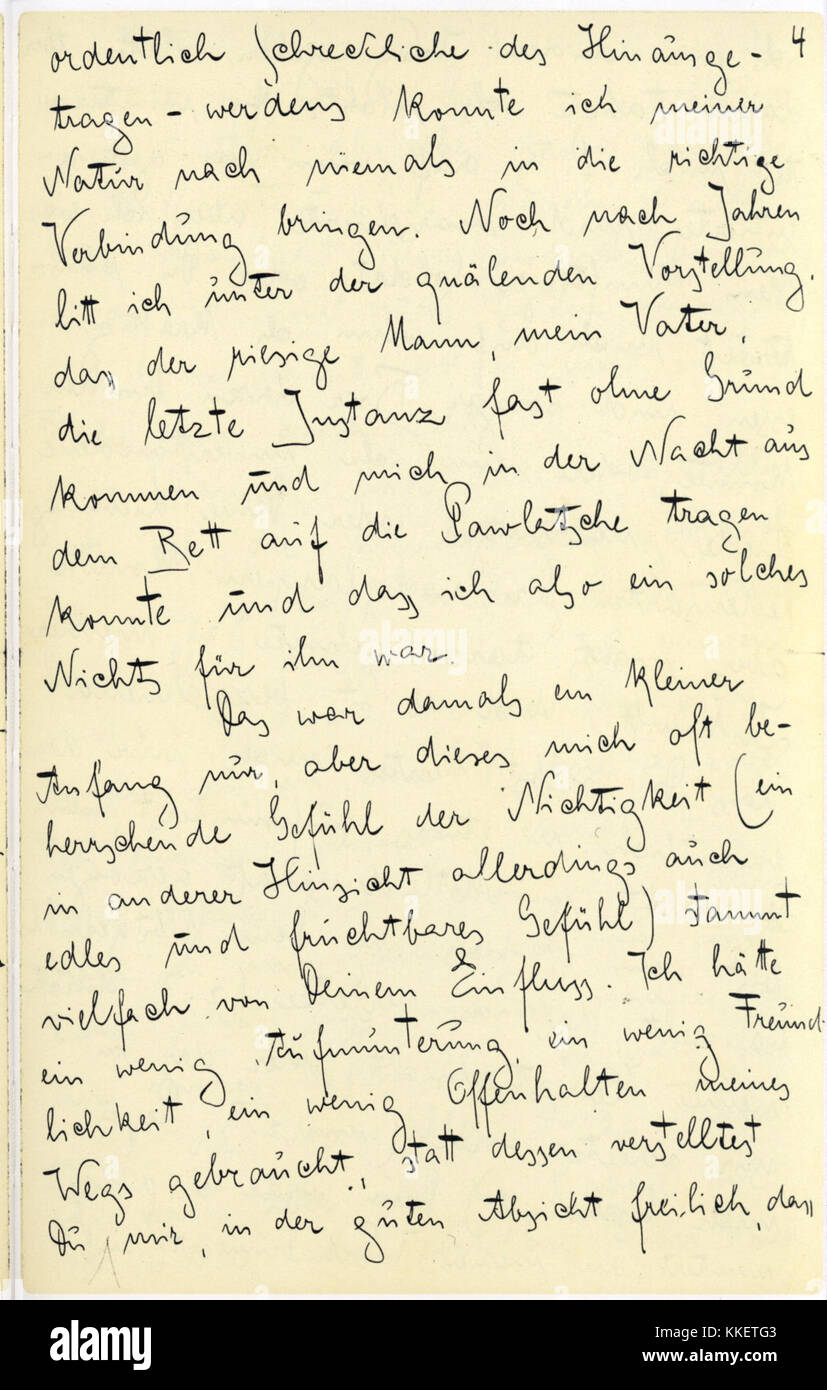 ordentlich Schreckliche des Hinausge- 4
tragen-werdens konnte ich meiner
Natur nach niemals in die richtige
Verbindung bringen. Noch nach Jahren
litt ich unter der quälenden Vorstellung,
dass der riesige Mann, mein Vater,
die letzte Instanz fast ohne Grund
kommen und mich in der Nacht aus
dem Bett auf die Pawlatsche tragen
konnte und dass ich also ein solches
Nichts für ihn war.
Das war damals ein kleiner
Anfang nur, aber dieses mich oft be-
herrschende Gefühl der Nichtigkeit (ein
in anderer Hinsicht allerdings auch
edles und fruchtbares Gefühl) stammt
vielfach von Deinem Einfluss. Ich hätte
ein wenig Aufmunterung, ein wenig Freund-
lichkeit, ein wenig Offenhalten meines
Wegs gebraucht, statt dessen verstelltest
Du mir, in der guten Absicht freilich, dass
alamy
Image ID: KKETG3
www.alamy.com